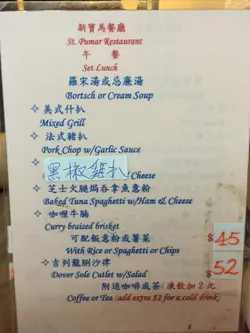 新寶馬餐廳
St. Pumar Restaurant
午 餐
Set Lunch
羅宋湯或忌廉湯
Bortsch or Cream Soup
美式什扒
Mixed Grill
法式豬扒
Pork Chop w/Garlic Sauce
黑椒雞扒
Cheese
芝士火腿焗吞拿魚意粉
Baked Tuna Spaghetti w/Ham & Cheese
咖喱牛腩
Curry braised brisket
可配飯意粉或薯菜
With Rice or Spaghetti or Chips
$45
吉列龍脷沙律
$52
Dover Sole Cutlet w/Salad
附送咖啡或茶(凍飲加2元
Coffee or Tea (add extra $2 for a cold drink)